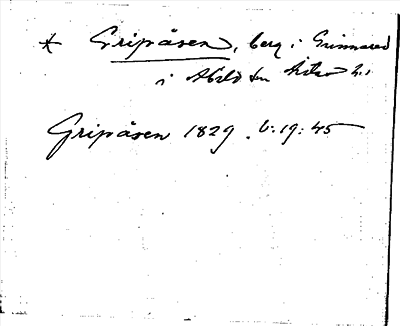 * Gripåsen, berg i Grimmared
i Abild sn Årstad h.,
Gripåsen 1829. b: 19: 45